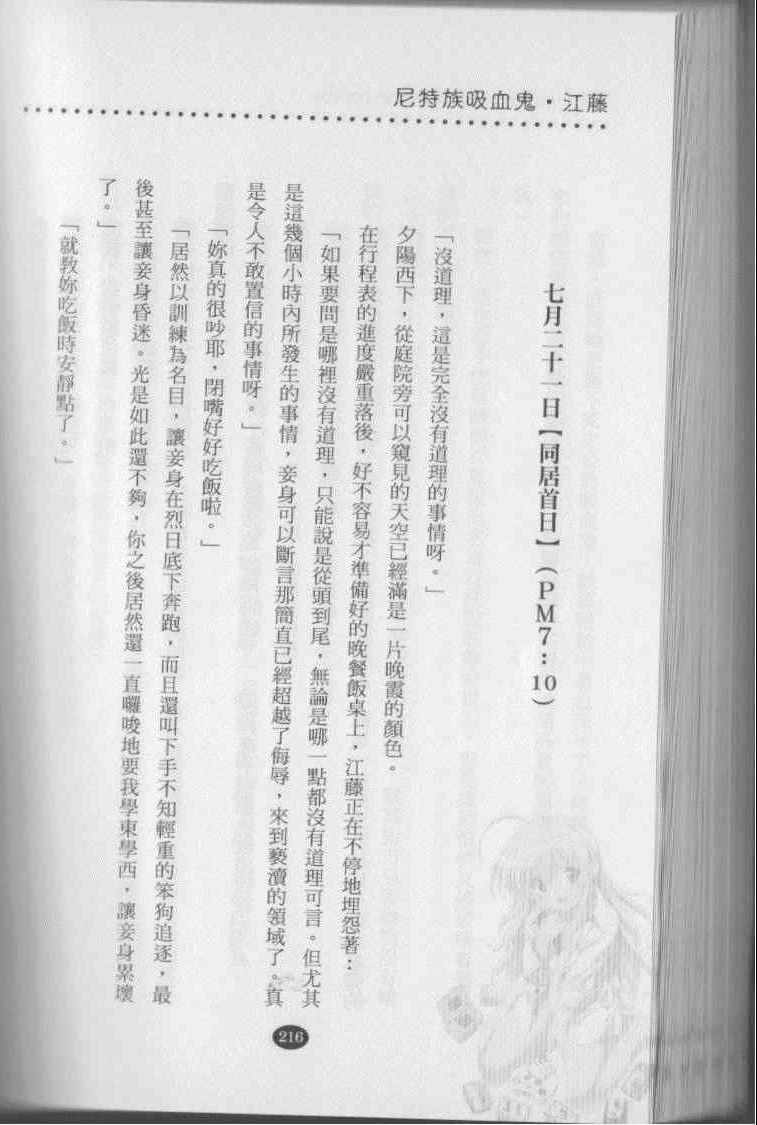 尼特族吸血鬼・江藤
七月二十一日【同居首日】（PM7：10）
「沒道理，這是完全沒有道理的事情呀。」
夕陽西下，從庭院旁可以窺見的天空已經滿是一片晚霞的顏色。
在行程表的進度嚴重落後，好不容易才準備好的晚餐飯桌上，江藤正在不停地埋怨著：
「如果要問是哪裡沒有道理，只能說是從頭到尾，無論是哪一點都沒有道理可言。但尤其
是這幾個小時內所發生的事情，妾身可以斷言那簡直已經超越了侮辱，來到褻瀆的領域了。真
是令人不敢置信的事情呀。」
「妳真的很吵耶，閉嘴好好吃飯啦。」
「居然以訓練為名目，讓妾身在烈日底下奔跑，而且還叫下手不知輕重的笨狗追逐，最
後甚至讓妾身昏迷。光是如此還不夠，你之後居然還一直囉唆地要我學東學西，讓妾身累壞
了。」
「就教妳吃飯時安靜點了。」
216